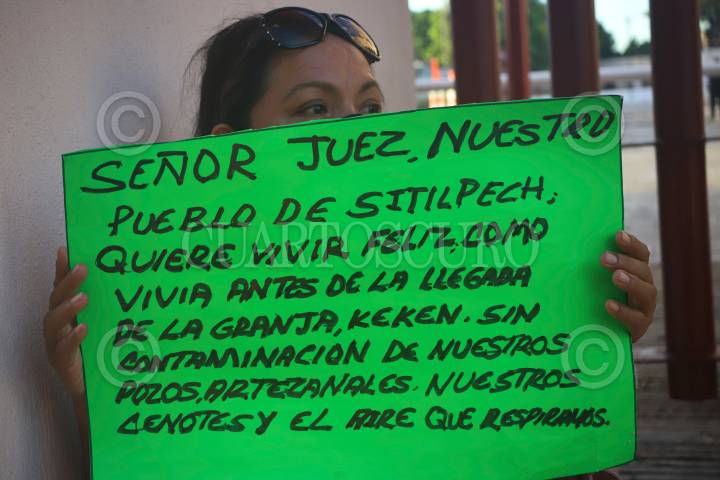 SEÑOR JUEZ, NUESTRO
PUEBLO DE SITILPECH;
QUIERE VIVIR FELIZ. COMO
VIVIA ANTES DE LA LLEGADA
DE LA GRANJA, KEKEN. SIN
CONTAMINACION DE NUESTROS
POZOS, ARTEZANALES. NUESTROS
CENOTES Y EL AIRE QUE RESPIRAMOS.
©
©
CUARTOSCURO
©
©